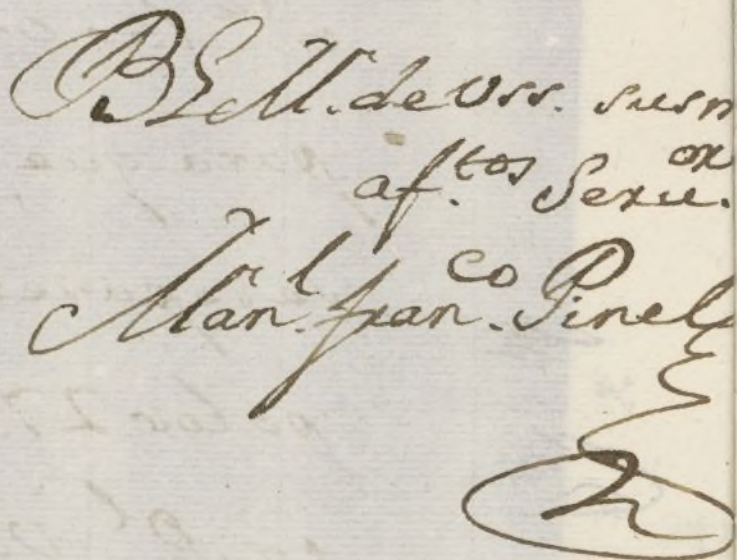 BLM. de Vss. su sn
af.tos Seru.or
Man.l fran.co Pinel